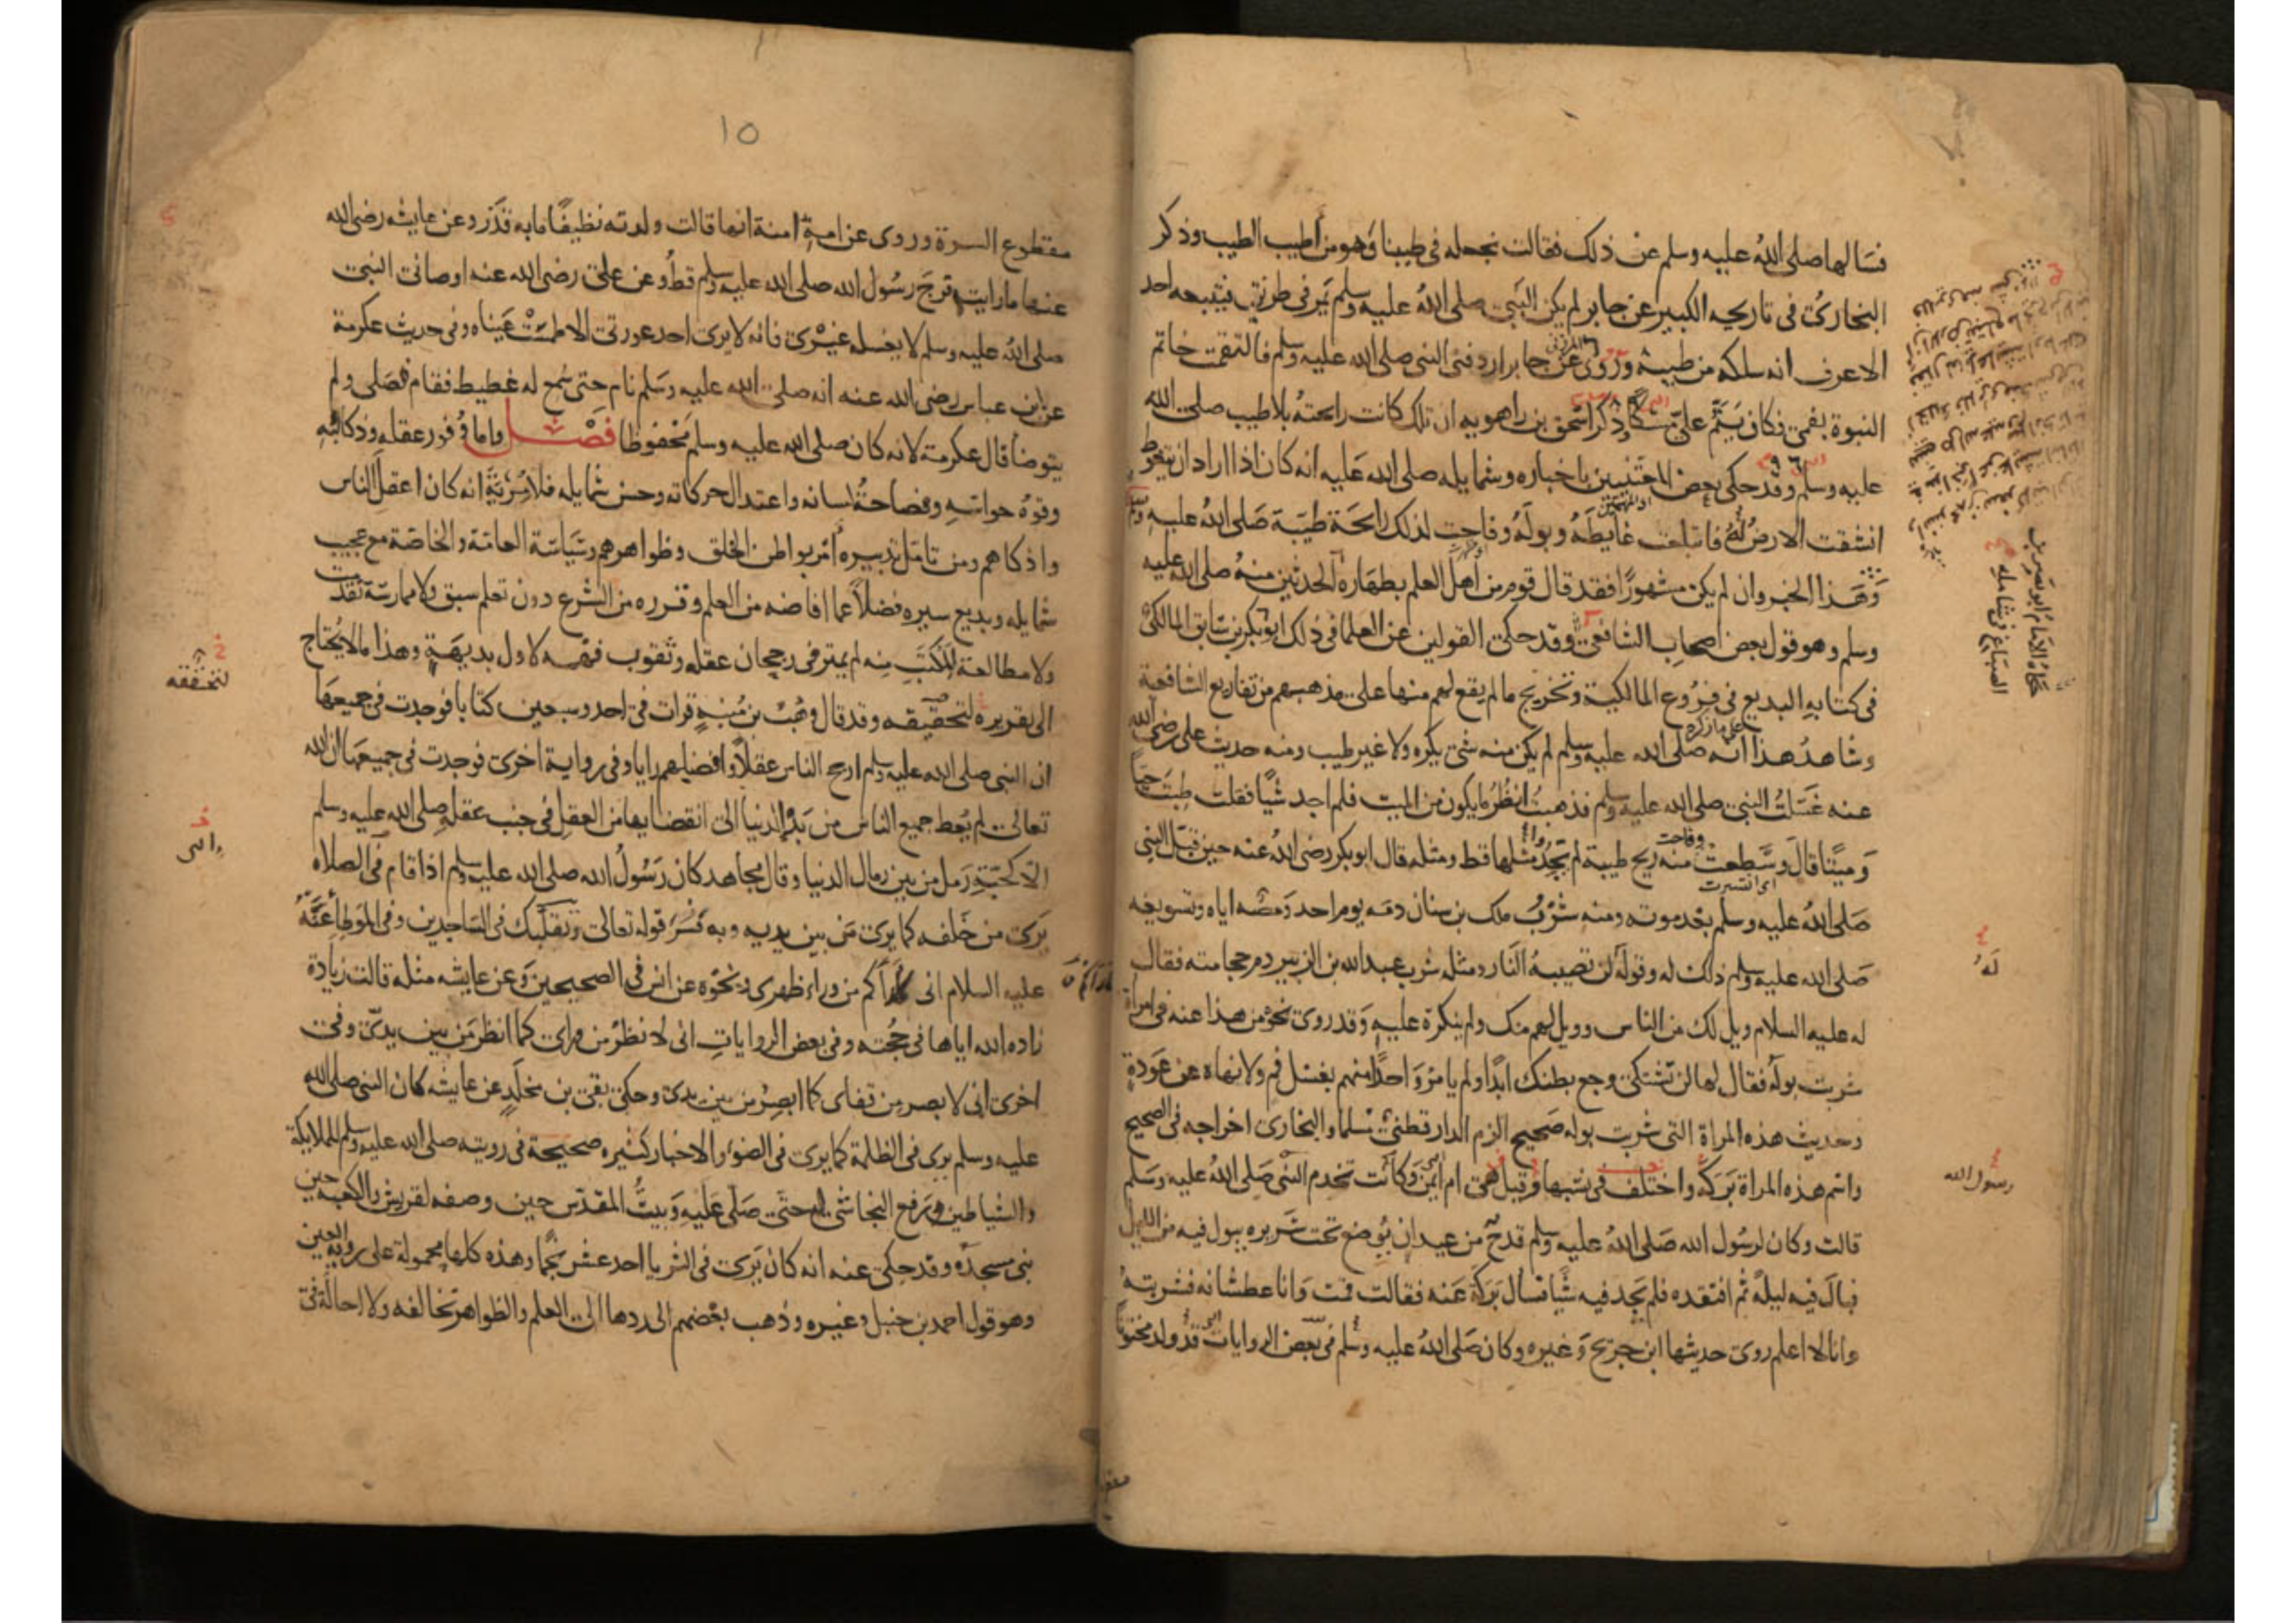 فسالها صلى الله عليه وسلم عن ذلك فقالت نجعله فى طيبنا وهو من اطيب الطيب وذكر
البخارى فى تاريخه الكبير عن جابر لم يكن النبى صلى الله عليه وسلم يمر فى طريق فيتبعه احد
الا عرف انه سلكه من طيبه وروى عن جابر اردفنى النبى صلى الله عليه وسلم فالتقمت خاتم
النبوة بفمى فكان ينم على مسكا وذكر اسحق بن راهويه ان تلك كانت رائحته بلا طيب صلى الله
عليه وسلم وقد حكى بعض المعتنيين باخباره وشمايله صلى الله عليه انه كان اذا اراد ان يتغوط
انشقت الارض له فابتلعت غايطه وبوله وفاحت لذلك رايحة طيبة صلى الله عليه وسلم
وهذا الخبر وان لم يكن مشهورا فقد قال قوم من اهل العلم بطهارة الحدثين منه صلى الله عليه
وسلم وهو قول بعض اصحاب الشافعى وقد حكى القولين عن العلما فى ذلك ابو بكر بن سابق المالكى
فى كتابه البديع فى فروع المالكية وتخريج ما لم يقع لهم منها على مذهبهم من تفاريع الشافعية
وشاهد هذا انه صلى الله عليه وسلم لم يكن منه شى يكره ولا غير طيب ومنه حديث على رضى الله
عنه غسلت النبى صلى الله عليه وسلم فذهبت انظر ما يكون من الميت فلم اجد شيا فقلت طبت حيا
وميتا قال وسطعت منه ريح طيبة لم نجد مثلها قط ومثله قال ابو بكر رضى الله عنه حين قبل النبى
صلى الله عليه وسلم بعد موته ومنه شرب ملك بن سنان دمه يوم احد ومصه اياه وتسويغه
صلى الله عليه وسلم ذلك له وقوله لن تصيبه النار ومثله شرب عبد الله بن الزبير دم حجامته فقال
له عليه السلام ويل لك من الناس وويل لهم منك ولم ينكره عليه وقد روى نحو من هذا عنه فى امراة
شربت بوله فقال لها لن تشتكى وجع بطنك ابدا ولم يامر واحدا منهم بغسل فم ولا نهاه عن عودة
وحديث هذه المراة التى شربت بوله صحيح الزم الدارقطنى مسلما والبخارى اخراجه فى الصحيح
واسم هذه المراة بركة واختلف فى نسبها وقيل هى ام ايمن وكانت تخدم النبى صلى الله عليه وسلم
قالت وكان لرسول الله صلى الله عليه وسلم قدح من عيدان يوضع تحت سريره يبول فيه من الليل
فبال فيه ليلة ثم افتقده فلم يجد فيه شيا فسال بركة عنه فقالت قمت وانا عطشانه فشربته
وانا لا اعلم روى حديثها ابن جريج وغيره وكان صلى الله عليه وسلم فى بعض الروايات قد ولد مختونا
حكاه الامام ابو نصر بن
الصباغ فى شامله
له
رسول الله
١٥
مقطوع السرة وروى عن امه امنة انها قالت ولدته نظيفا ما به قذر وعن عايشه رضى الله
عنها ما رايت فرج رسول الله صلى الله عليه وسلم قط وعن على رضى الله عنه اوصانى النبى
صلى الله عليه وسلم لا يغسله غيرى فانه لا يرى احد عورتى الا طمست عيناه وفى حديث عكرمة
عن ابن عباس رضى الله عنه انه صلى الله عليه وسلم نام حتى سمع له غطيط فقام فصلى ولم
يتوضا قال عكرمة لانه كان صلى الله عليه وسلم محفوظا فصل واما وفور عقله وذكا لبه
وقوة حواسه وفصاحة لسانه واعتدال حركاته وحسن شمايله فلا مرية انه كان اعقل الناس
واذكاهم ومن تامل تدبيره امر بواطن الخلق وظواهرهم وسياسة العامة والخاصة مع عجيب
شمايله وبديع سيره فضلا عما افاضه من العلم وقرره من الشرع دون تعلم سبق ولا ممارسة تقدمت
ولا مطالعة للكتب منه لم يمتر فى رجحان عقله وثقوب فهمه لاول بديهة وهذا ما لا يحتاج
الى تقريره لتحقيقه وقد قال وهب بن منبه قرات فى احد وسبعين كتابا فوجدت فى جميعها
ان النبى صلى الله عليه وسلم ارجح الناس عقلا وافضلهم رايا وفى رواية اخرى فوجدت فى جميعها ان الله
تعالى لم يعط جميع الناس من بدء الدنيا الى انقضايها من العقل فى جنب عقله صلى الله عليه وسلم
الا كحبة رمل من بين رمال الدنيا وقال مجاهد كان رسول الله صلى الله عليه وسلم اذا قام فى الصلاة
يرى من خلفه كما يرى من بين يديه وبه فسر قوله تعالى وتقلبك فى الساجدين وفى الموطا عنه
عليه السلام انى لاراكم من وراء ظهرى ونحوه عن انس فى الصحيحين وعن عايشه مثله قالت زيادة
زاده الله اياها فى حجته وفى بعض الروايات انى لانظر من وراى كما انظر من بين يدى وفى
اخرى انى لابصر من قفاى كما ابصر من بين يدى وحكى بقى بن مخلد عن عايشه كان النبى صلى الله
عليه وسلم يرى فى الظلمة كما يرى فى الضوء والاخبار كثيره صحيحة فى رويته صلى الله عليه وسلم للملايكة
والشياطين ورفع النجاشى له حتى صلى عليه وبيت المقدس حين وصفه لقريش والكعبه حين
بنى مسجده وقد حكى عنه انه كان يرى فى الثريا احد عشر نجما وهذه كلها محمولة على روية العين
وهو قول احمد بن حنبل وغيره وذهب بعضهم الى ردها الى العلم والظواهر تخالفه ولا احالة فى